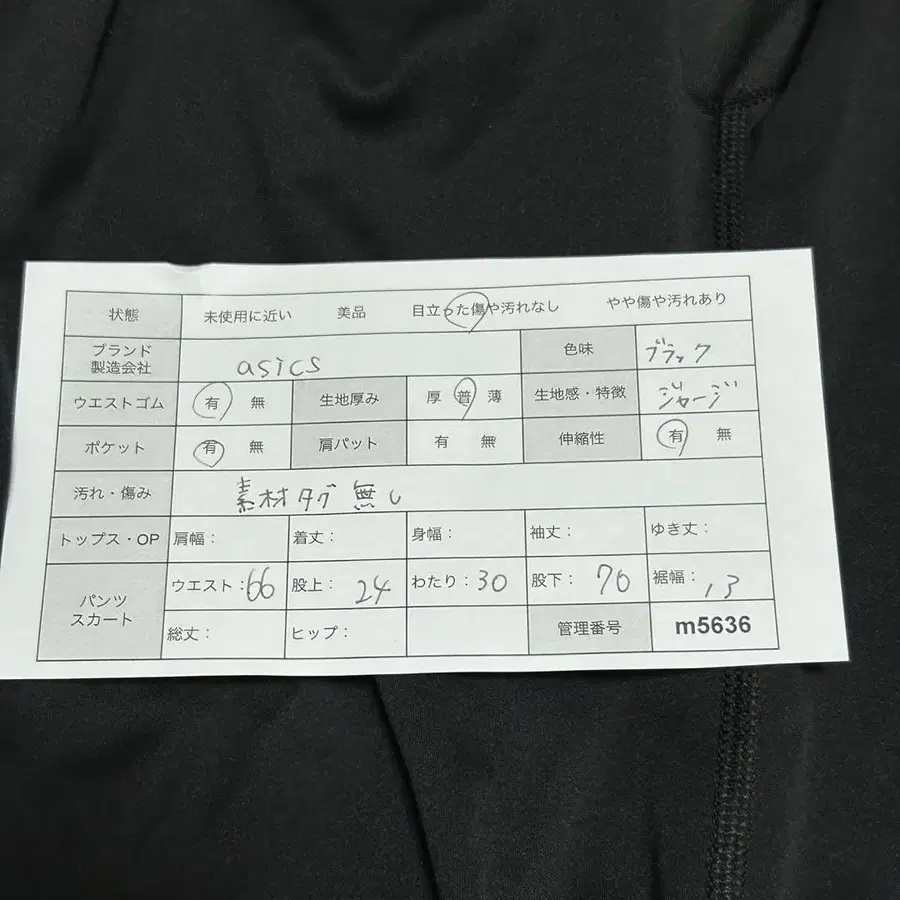 状態 未使用に近い 美品 目立った傷や汚れなし やや傷や汚れあり
ブランド
製造会社 asics 色味 ブラック
ウエストゴム 有 無 生地厚み 厚 普 薄 生地感・特徴 ジャージ
ポケット 有 無 肩パット 有 無 伸縮性 有 無
汚れ・傷み 素材タグ無し
トップス・OP 肩幅: 着丈: 身幅: 袖丈: ゆき丈:
パンツ
スカート ウエスト:66 股上:24 わたり:30 股下:70 裾幅:13
総丈: ヒップ: 管理番号 m5636